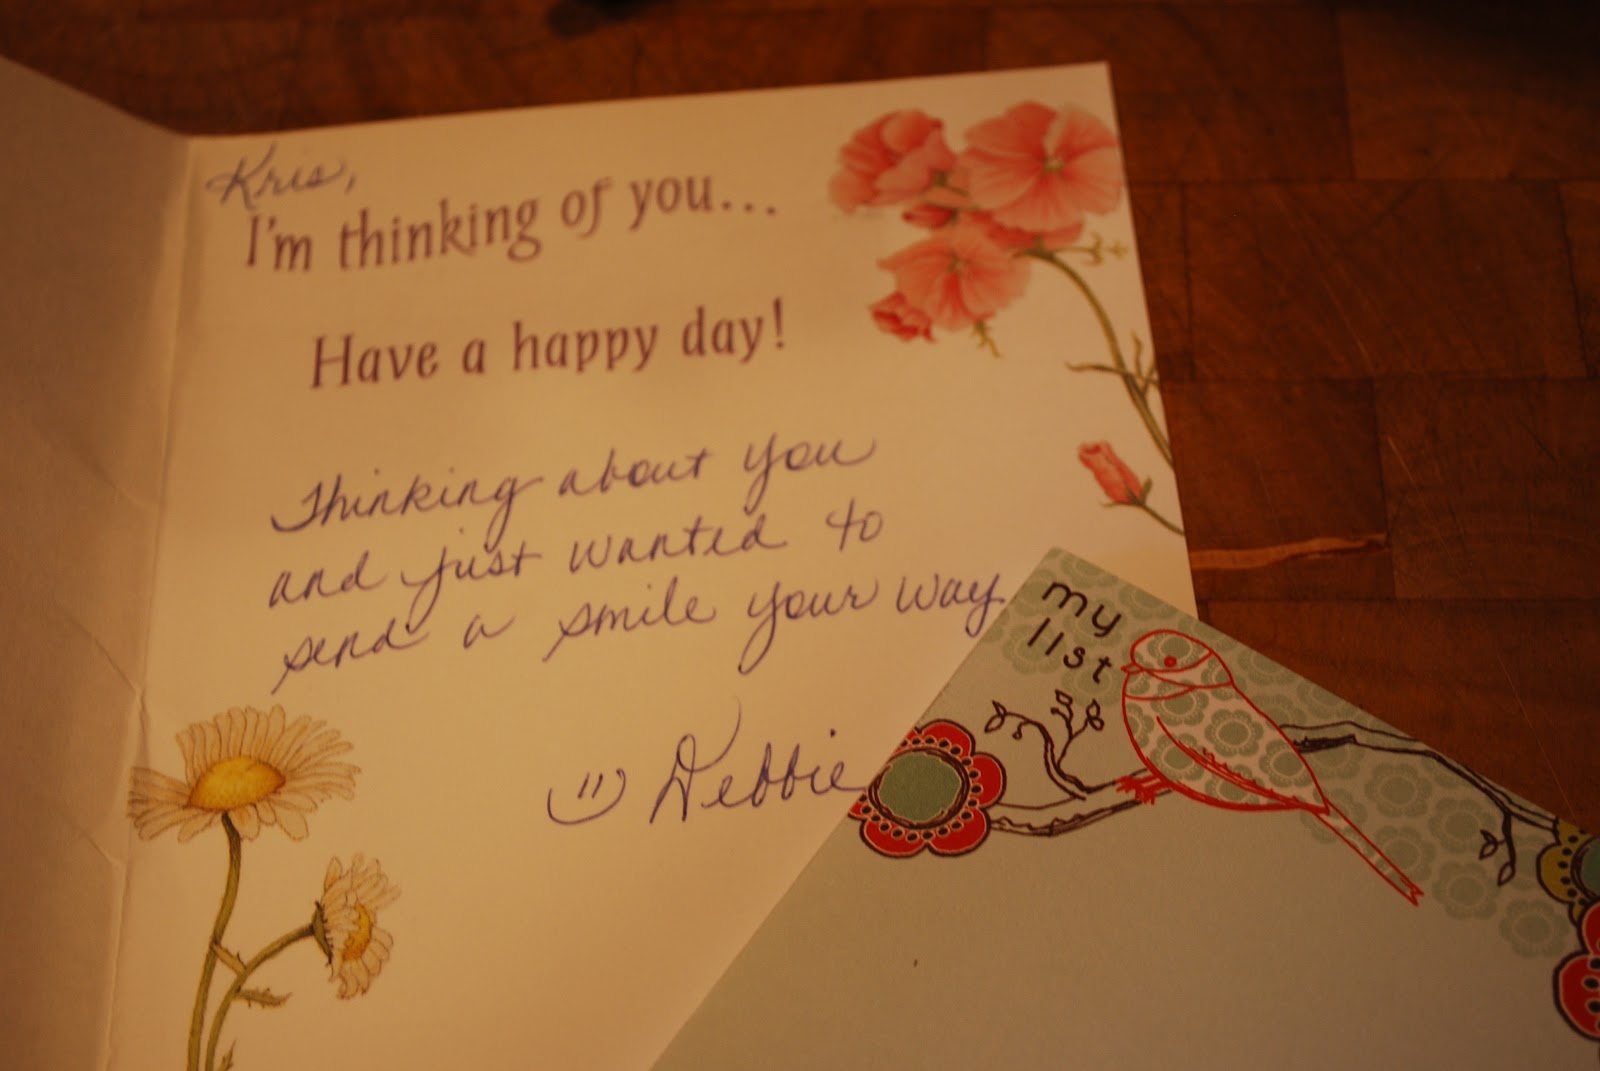 Kris,
I'm thinking of you...
Have a happy day!
Thinking about you
and just wanted to
send a smile your way
Debbie
my
list